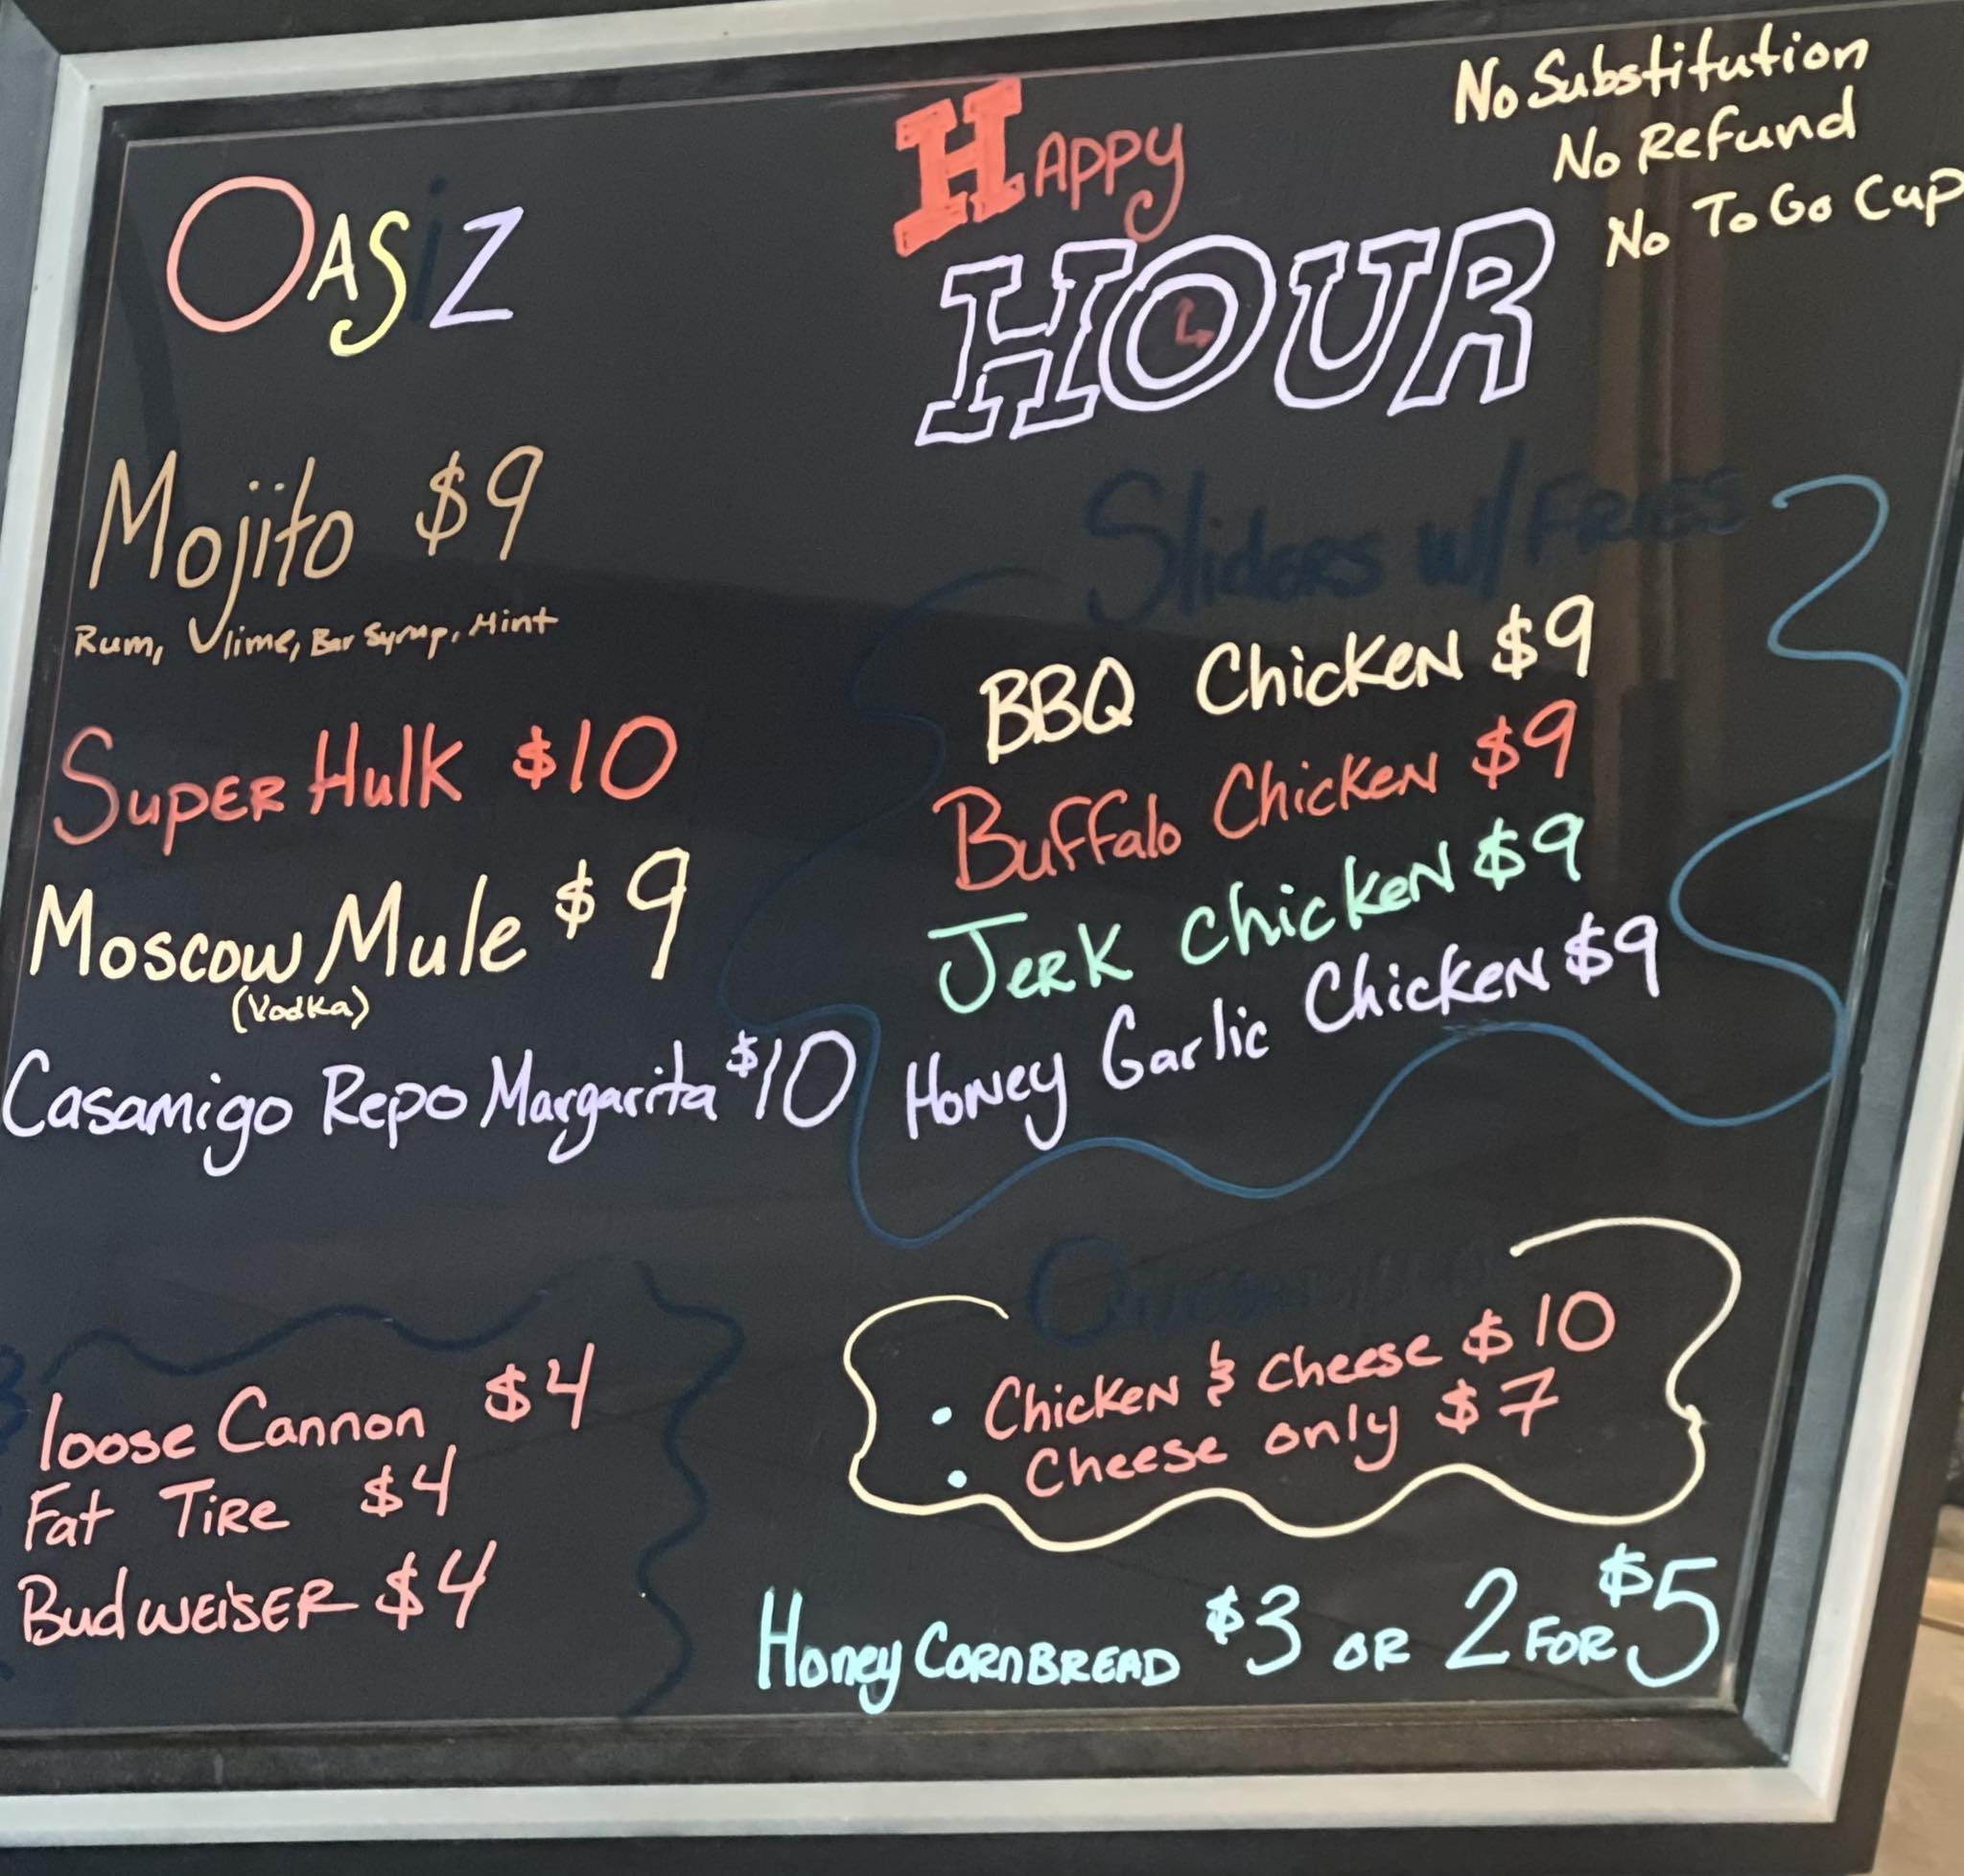 OASiZ
HAPPY
HOUR
No Substitution
No Refund
No To Go Cup
Mojito $9
Rum, lime, Bar Syrup, Mint
Super Hulk $10
Moscow Mule $9
(Vodka)
Casamigo Repo Margarita $10
loose Cannon $4
Fat Tire $4
Budweiser $4
Sliders w/ FRIES
BBQ Chicken $9
Buffalo Chicken $9
Jerk Chicken $9
Honey Garlic Chicken $9
• Chicken & Cheese $10
• Cheese only $7
Honey CORNBREAD $3 OR 2 FOR $5